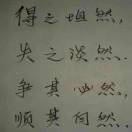 得之坦然，
失之淡然，
争其必然，
顺其自然。